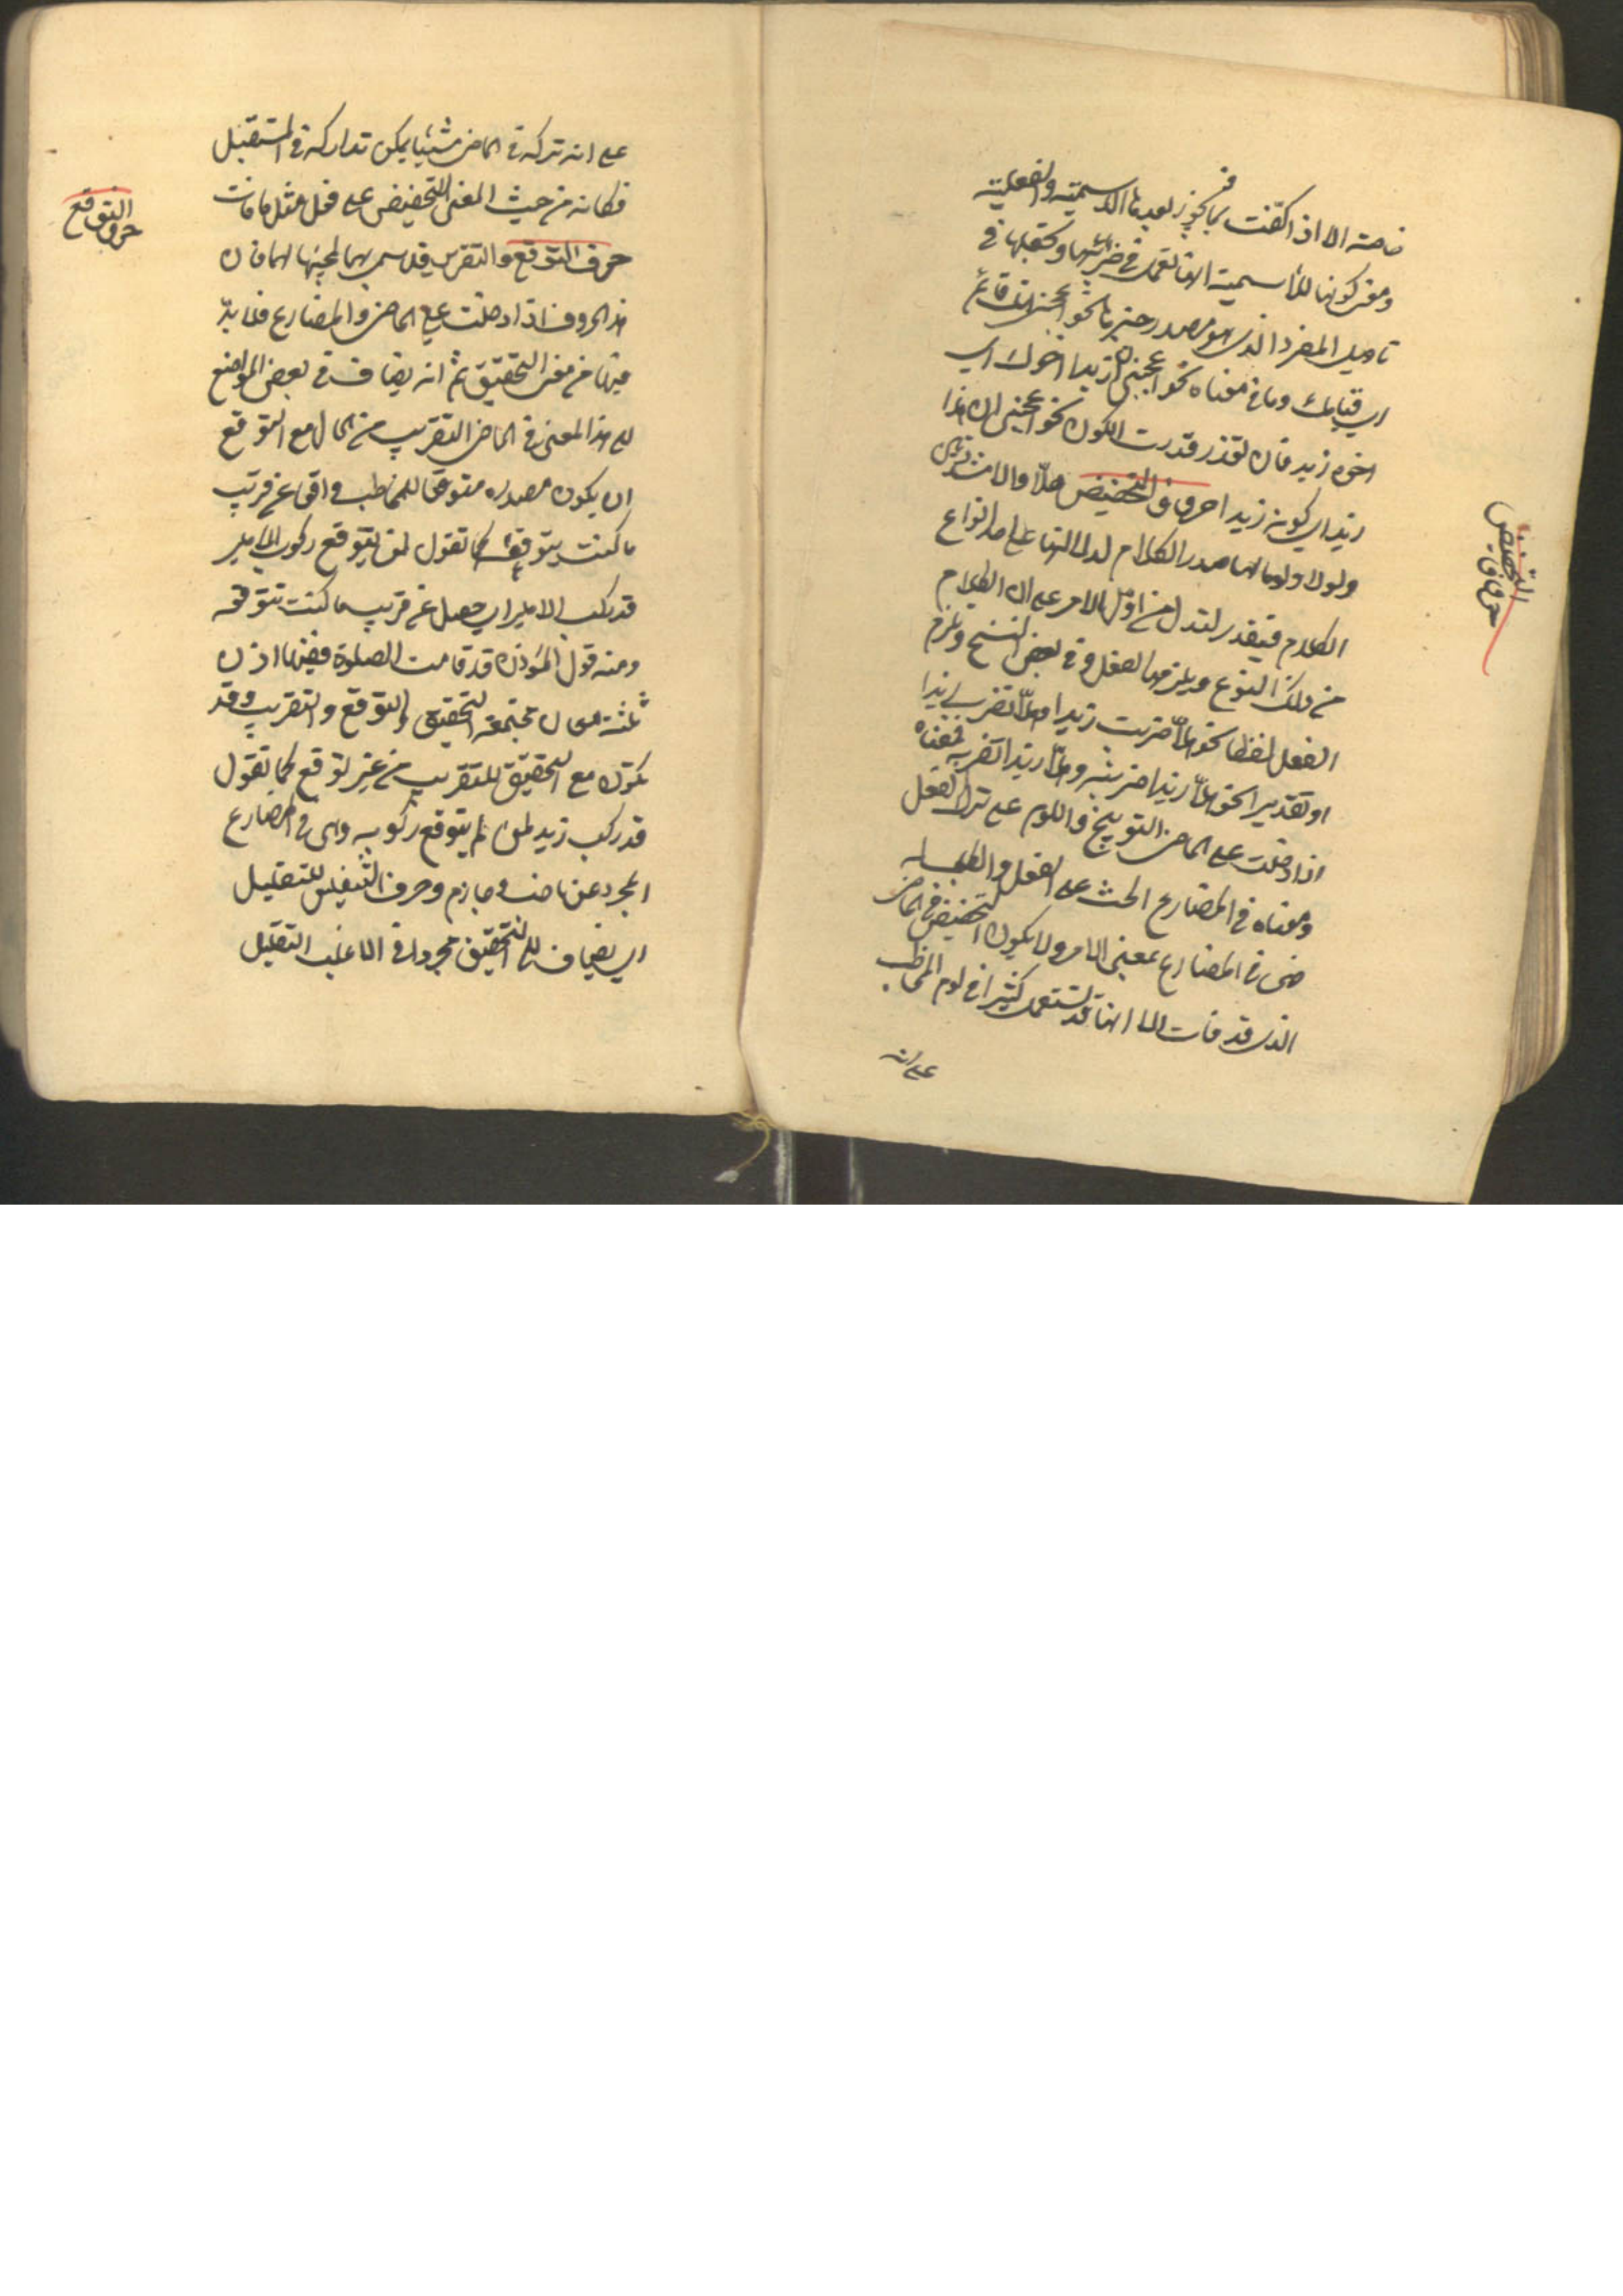 خاصته الا اذا كفت بما فيجوز بعدها الاسمية والفعلية
ومعنى كونها للاسمية انها تعمل في جزئيها وتجعلها في
تاويل المفرد الذي هو مصدر خبرها نحو اعجبني انك قائم
اي قيامك وما في معناه نحو اعجبني ان زيدا اخوك اي
اخوة زيد فان تعذر قدرت الكون نحو اعجبني ان هذا
زيد اي كونه زيدا حروف التحضيض هلّا والا مشددتين
ولولا ولوما لها صدر الكلام لدلالتها على احد انواع
الكلام فتصدر لتدل من اول الامر على ان الكلام
من ذلك النوع ويلزمها الفعل وفي بعض النسخ وتلزم
الفعل لفظا نحو هلّا ضربت زيدا وهلّا تضرب زيدا
او تقديرا نحو هلّا زيدا ضربته وهلّا زيدا تضربه فمعناه
اذا دخلت على الماضي التوبيخ واللوم على ترك الفعل
ومعناه في المضارع الحث على الفعل والطلب له
فهي في المضارع بمعنى الامر ولا يكون التحضيض في الماضي
الذي قد فات الا انها قد تستعمل كثيرا في لوم المخاطب
على انه
حروف التحضيض
على انه ترك في الماضي شيئا يمكن تداركه في المستقبل
فكانه من حيث المعنى للتحضيض على فعل مثل ما فات
حرف التوقع والتقريب قد سمي بهما لمجيئها لهما فان
هذا الحروف اذا دخلت على الماضي والمضارع فلا بد
فيها من معنى التحقيق ثم انه يضاف في بعض المواضع
الى هذا المعنى في الماضي التقريب من الحال مع التوقع
اي يكون مصدره متوقعا للمخاطب واقعا عن قريب
ما كنت يتوقعه كما تقول لمن يتوقع ركوب الامير
قد ركب الامير اي حصل عن قريب ما كنت تتوقعه
ومنه قول المؤذن قد قامت الصلوة ففيها اذن
ثلثة معان مجتمعة التحقيق والتوقع والتقريب وقد
تكون مع التحقيق للتقريب من غير توقع كما تقول
قد ركب زيد لمن لم يتوقع ركوبه وهي في المضارع
المجرد عن ناصب وجازم وحرف التنفيس للتقليل
اي يضاف الى التحقيق مجردا في الاغلب التقليل
حرف التوقع